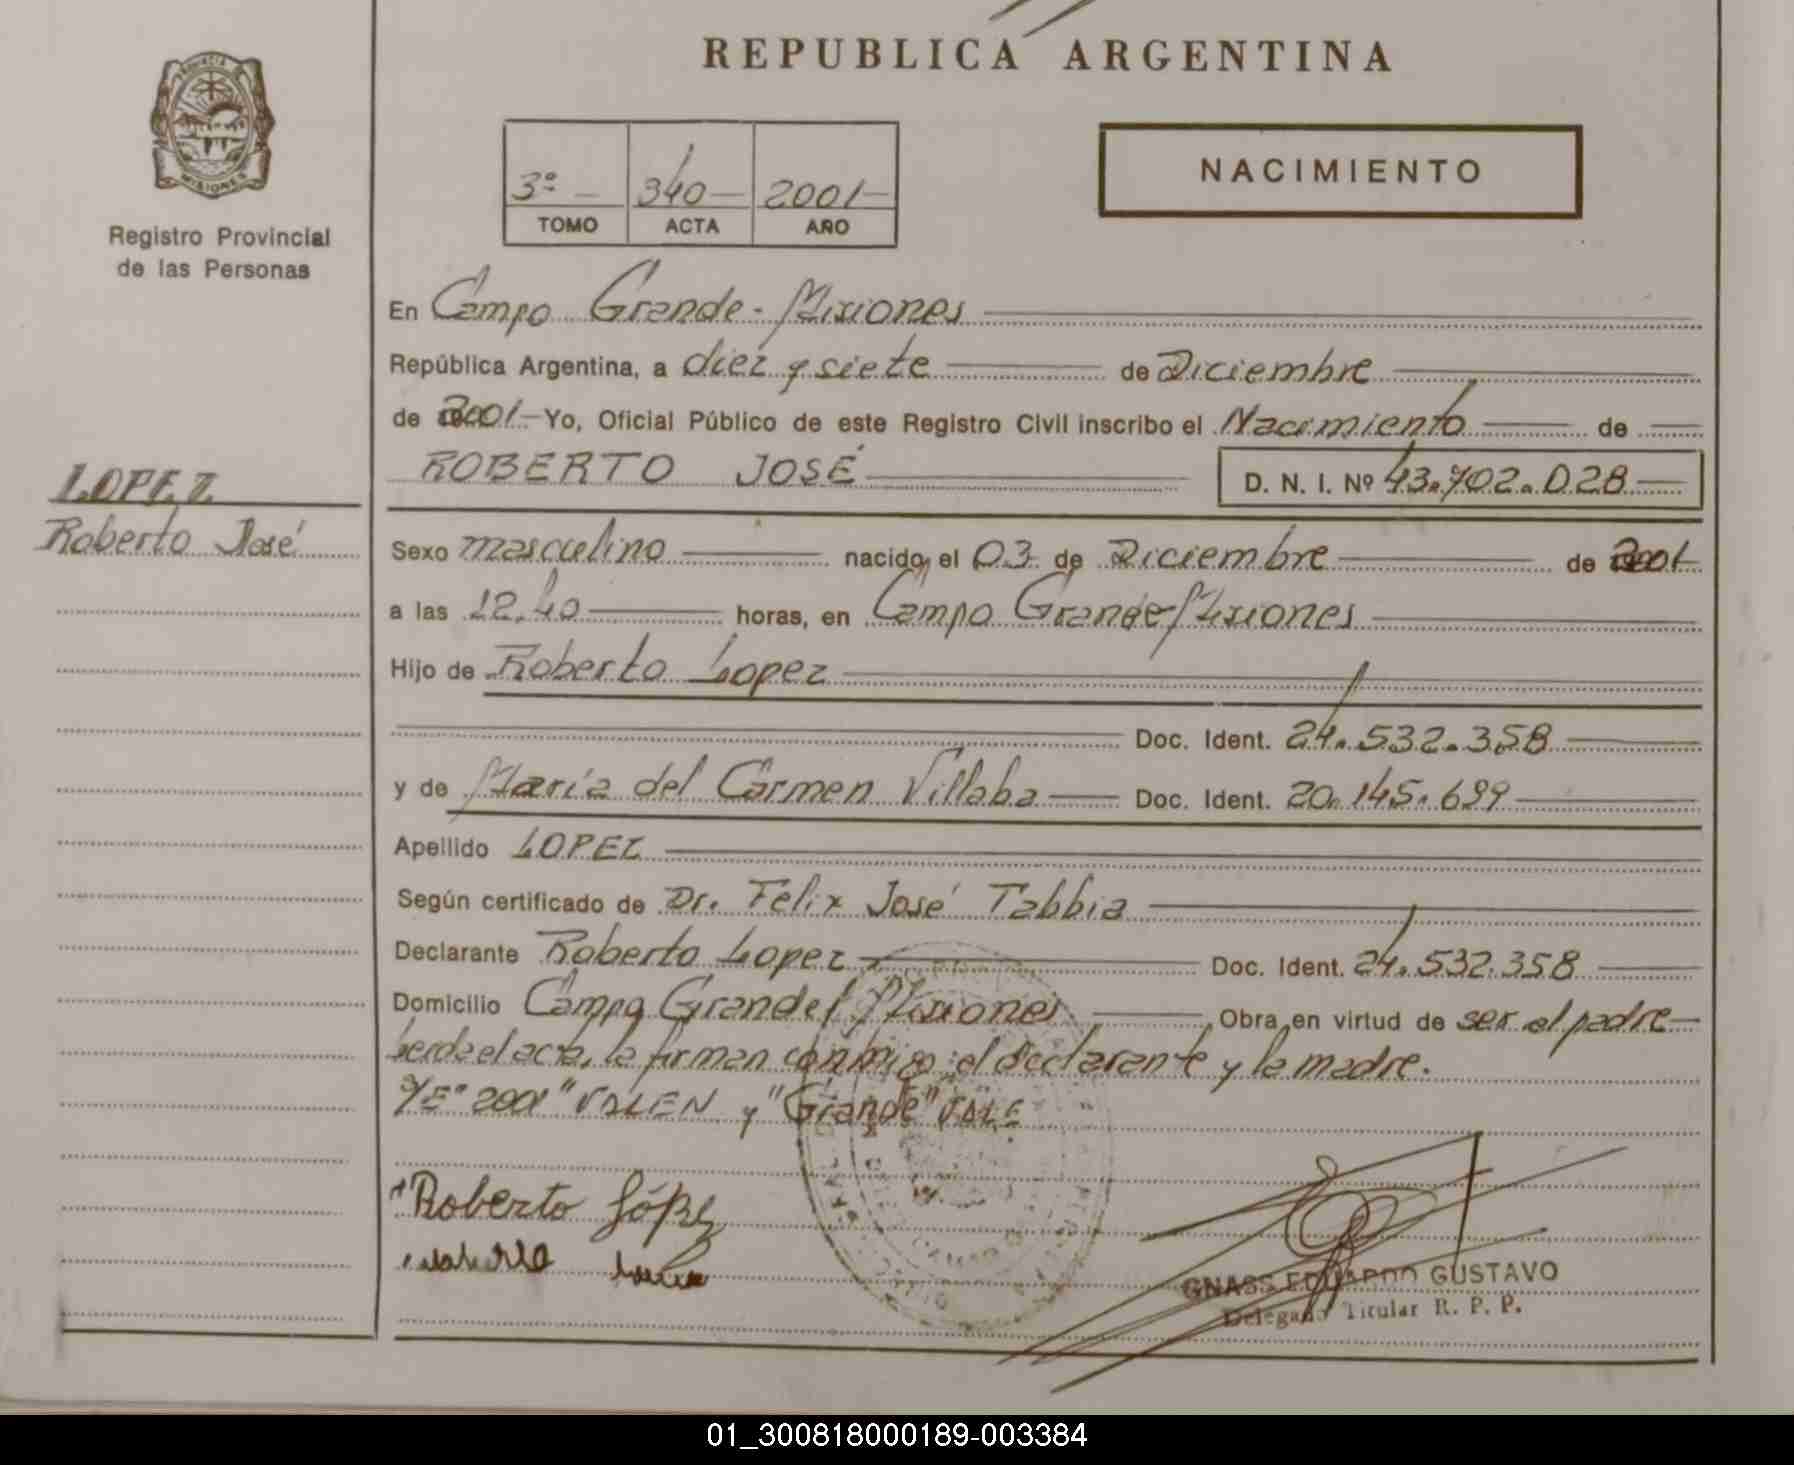 REPUBLICA ARGENTINA
PROVINCIA DE
MISIONES
Registro Provincial
de las Personas
3º
340
2001
TOMO
ACTA
AÑO
NACIMIENTO
En Campo Grande - Misiones
República Argentina, a diez y siete de Diciembre
de 2001 Yo, Oficial Público de este Registro Civil inscribo el Nacimiento de
ROBERTO JOSÉ
D. N. I. Nº 43.702.028
LOPEZ
Roberto José
Sexo masculino nacido el 03 de Diciembre de 2001
a las 12.40 horas, en Campo Grande Misiones
Hijo de Roberto Lopez
Doc. Ident. 24.532.358
y de María del Carmen Villaba Doc. Ident. 20.145.699
Apellido LOPEZ
Según certificado de Dr. Felix José Tabbia
Declarante Roberto Lopez Doc. Ident. 24.532.358
Domicilio Campo Grande Misiones Obra en virtud de ser el padre
el acta, la firman conmigo: el declarante y la madre.
S/E" 2001" VALEN y "Grande" VALE
Roberto López
GNASS EDUARDO GUSTAVO
Delegado Titular R. P. P.
01_300818000189-003384